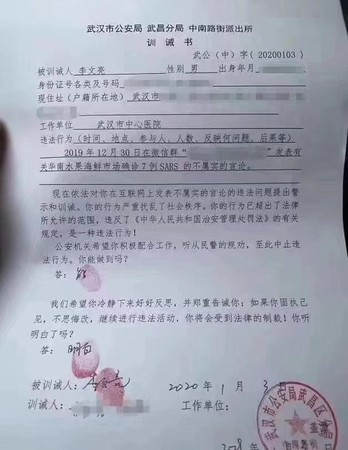 武汉市公安局 武昌分局 中南路街派出所
训 诫 书
武公(中)字(20200103)
被训诫人 李文亮 性别 男 出生年月
身份证号各类及号码
现住址(户籍所在地) 武汉市
工作单位 武汉市中心医院
违法行为(时间、地点、参与人、人数、反映何问题、后果等)
2019年12月30日在微信群“ ”发表有
关华南水果海鲜市场确诊7例SARS的不属实的言论。
现在依法对你在互联网上发表不属实的言论的违法问题提出警
示和训诫。你的行为严重扰乱了社会秩序。你的行为已超出了法律
所允许的范围,违反了《中华人民共和国治安管理处罚法》的有关
规定,是一种违法行为!
公安机关希望你积极配合工作,听从民警的规劝,至此中止违
法行为。你能做到吗?
答:能
我们希望你冷静下来好好反思,并郑重告诫你:如果你固执已
见,不思悔改,继续进行违法活动,你将会受到法律的制裁!你听
明白了吗?
答:明白
被训诫人:李文亮 2020年1月3日
训诫人: 工作单位:
武汉市公安局武昌区